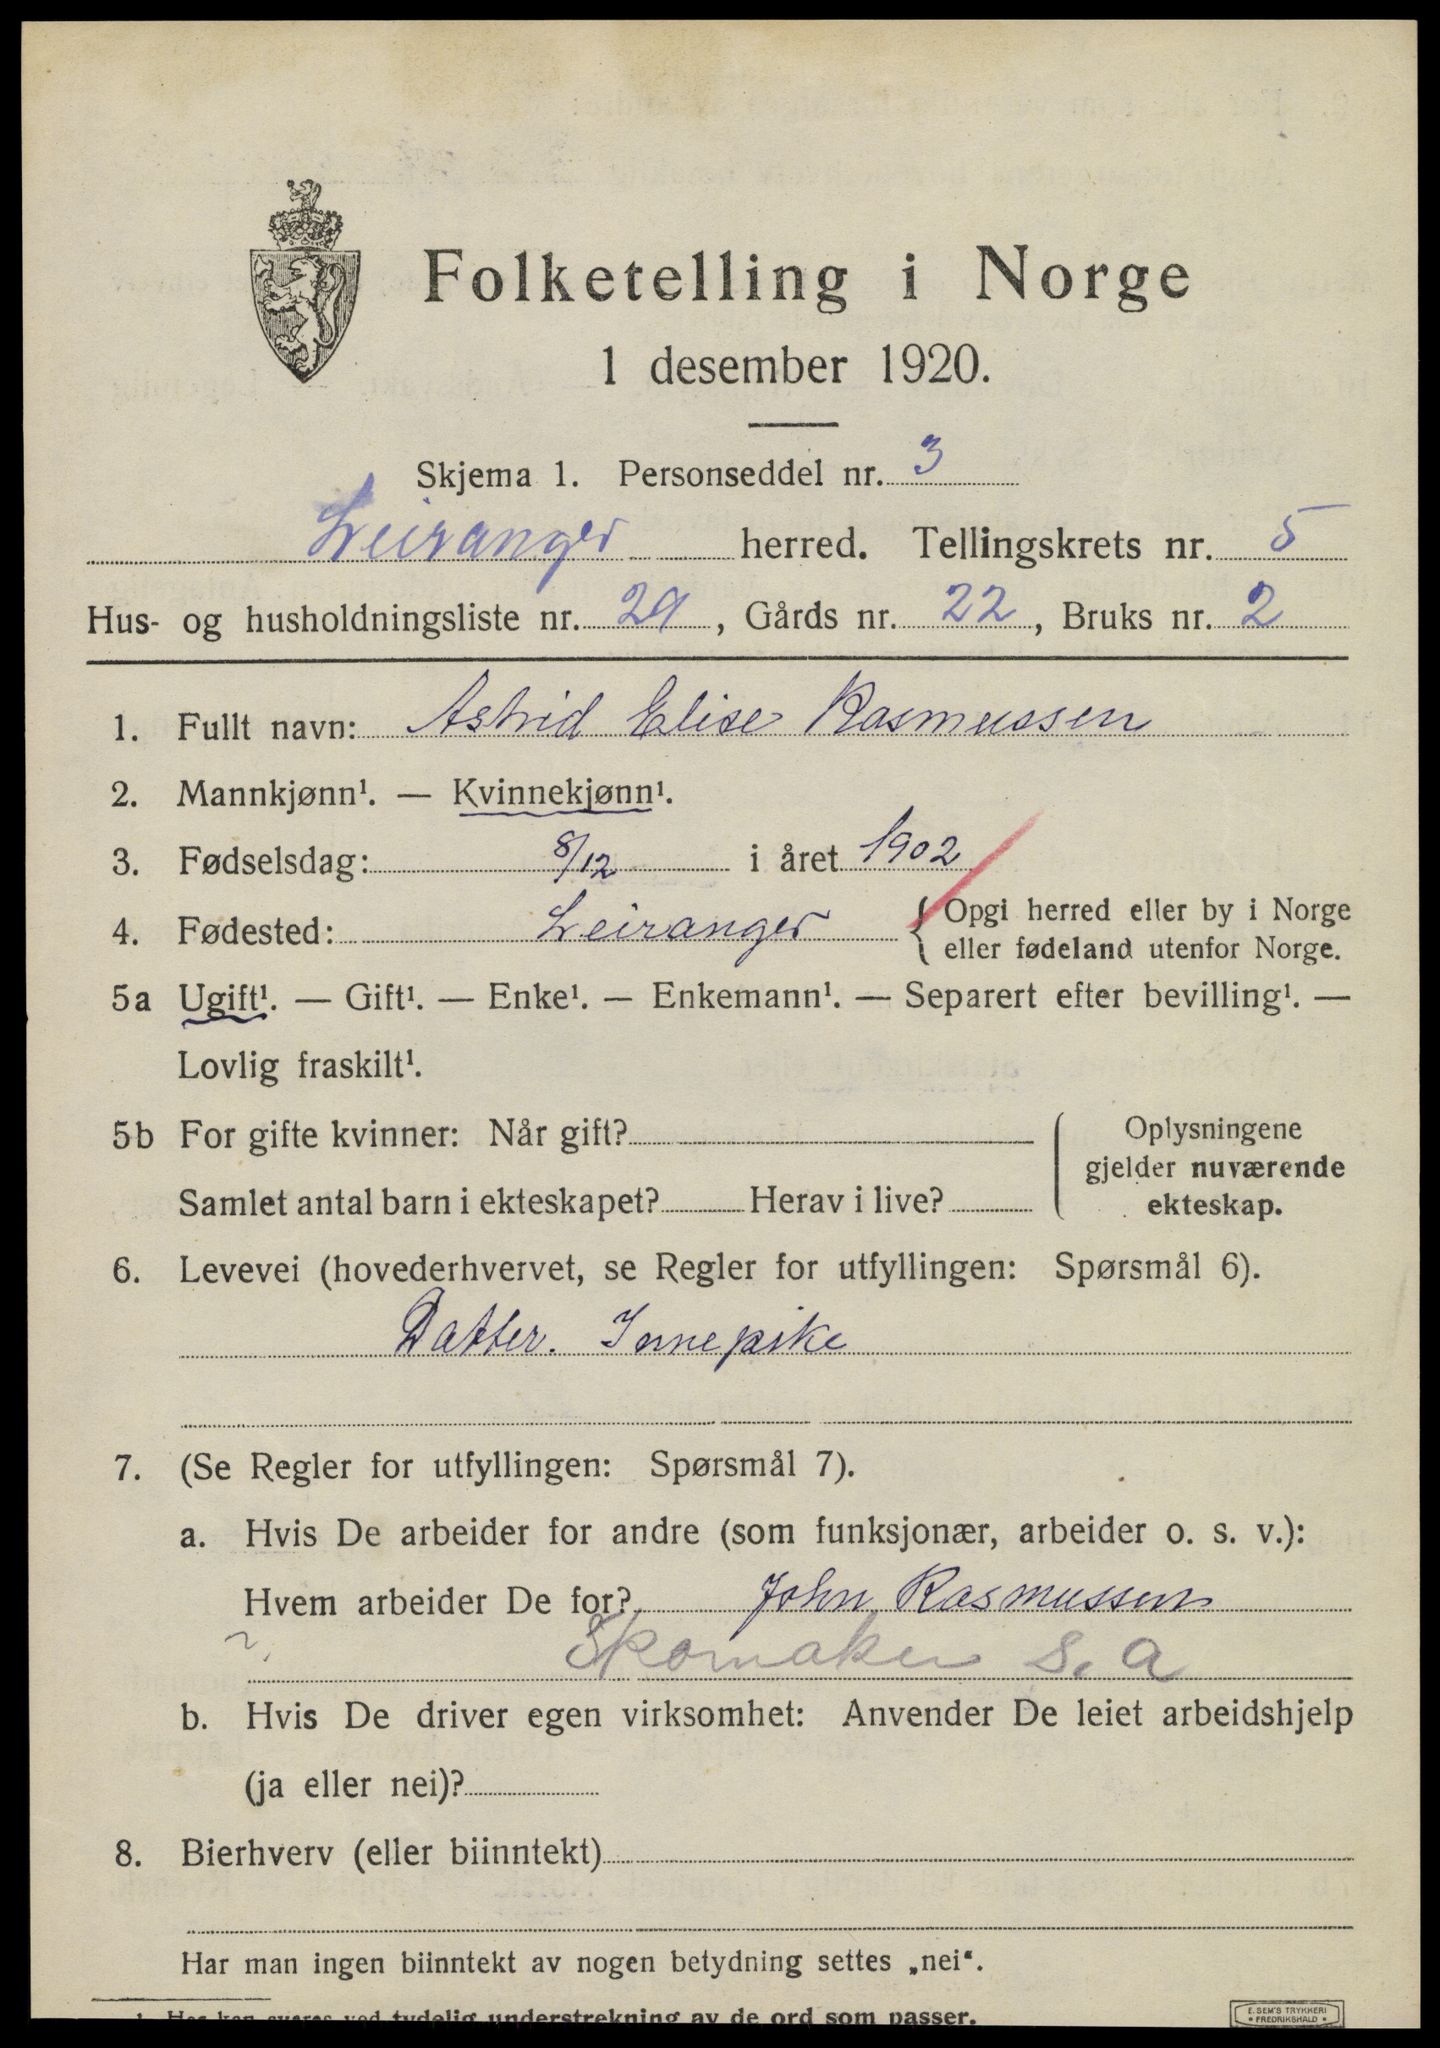 Folketelling i Norge
1 desember 1920.
Skjema 1. Personseddel nr. 3
Leiranger herred. Tellingskrets nr. 5
Hus- og husholdningsliste nr. 29, Gårds nr. 22, Bruks nr. 2
1. Fullt navn: Astrid Elise Rasmussen
2. Mannkjønn¹. — Kvinnekjønn¹.
3. Fødselsdag: 8/12 i året 1902
4. Fødested: Leiranger { Opgi herred eller by i Norge
eller fødeland utenfor Norge.
5a Ugift¹. — Gift¹. — Enke¹. — Enkemann¹. — Separert efter bevilling¹. —
Lovlig fraskilt¹.
5b For gifte kvinner: Når gift?
Samlet antal barn i ekteskapet? Herav i live?
Oplysningene
gjelder nuværende
ekteskap.
6. Levevei (hovederhvervet, se Regler for utfyllingen: Spørsmål 6).
Datter. Innepike
7. (Se Regler for utfyllingen: Spørsmål 7).
a. Hvis De arbeider for andre (som funksjonær, arbeider o. s. v.):
Hvem arbeider De for? John Rasmussen
Skomaker S. a
b. Hvis De driver egen virksomhet: Anvender De leiet arbeidshjelp
(ja eller nei)?
8. Bierhverv (eller biinntekt)
Har man ingen biinntekt av nogen betydning settes „nei“.
¹ Her kan svares ved tydelig understrekning av de ord som passer.
E. SEM'S TRYKKERI
• FREDRIKSHALD •